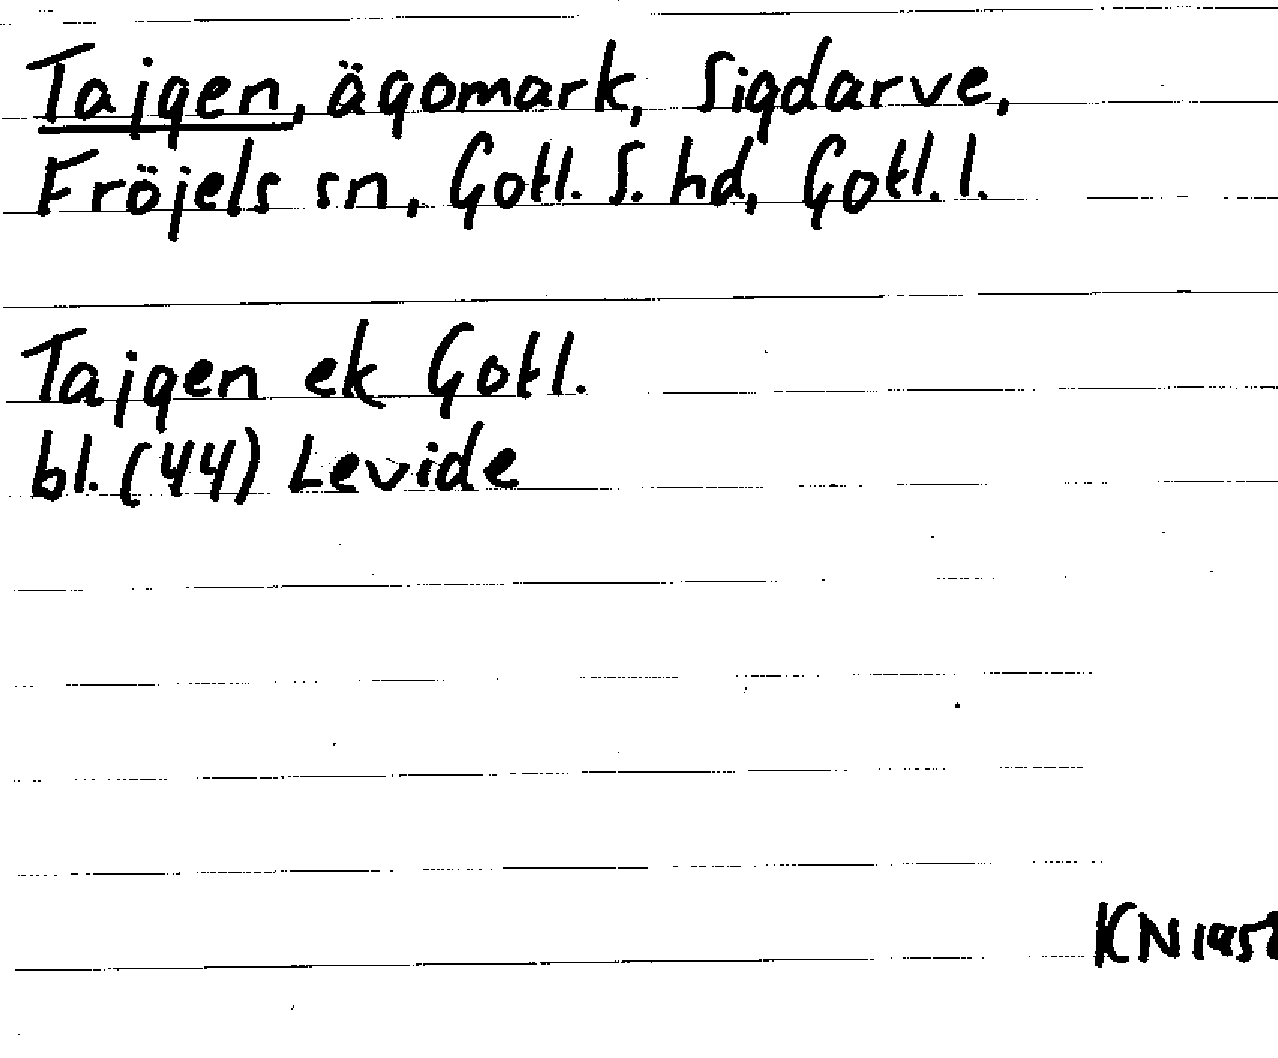 Tajgen, ägomark, Sigdarve,
Fröjels sn, Gotl. S. hd, Gotl. l.
Tajgen ek Gotl.
bl. (44) Levide
KN 1957